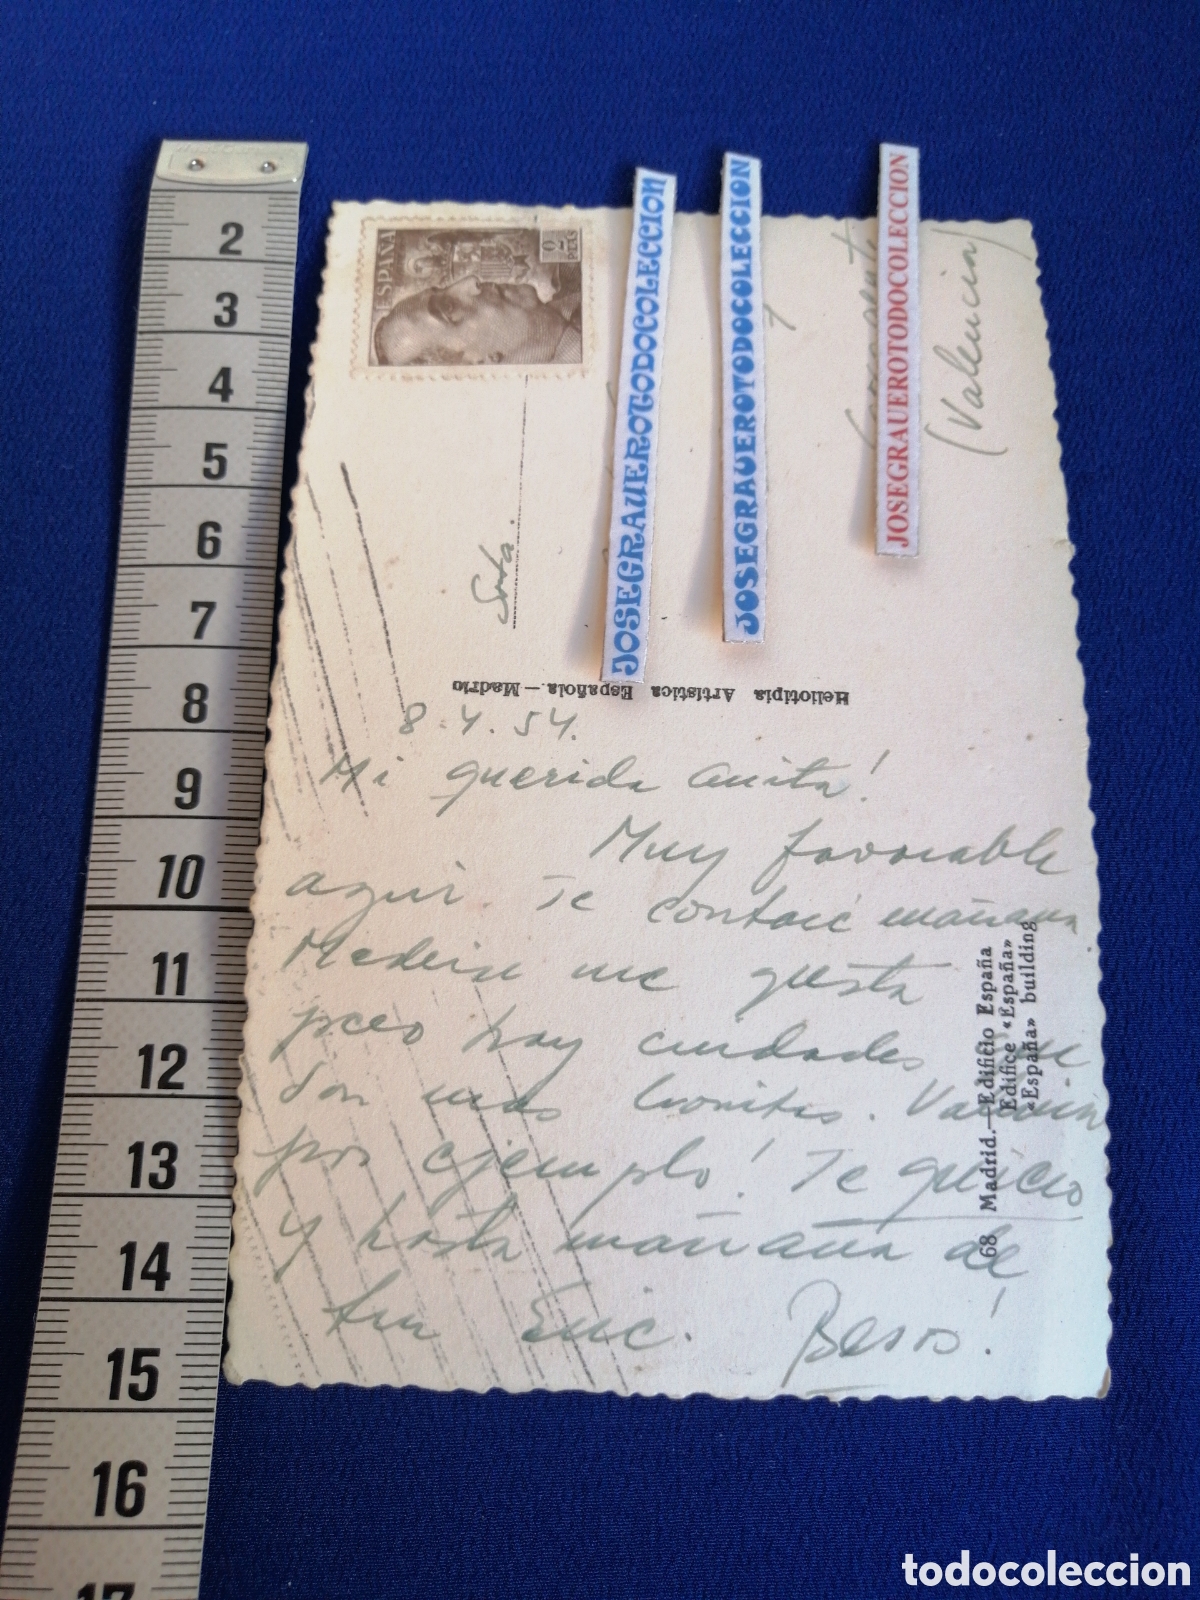 2
3
4
5
6
7
8
9
10
11
12
13
14
15
16
17
ESPAÑA
PTAS
JOSEGRAUEROTODOCOLECCION
JOSEGRAUEROTODOCOLECCION
JOSEGRAUEROTODOCOLECCION
Srta.
(Valencia)
Heliotipia Artistica Española.—Madrid
8.4.54.
Mi querida Anita!
Muy favorable
aquí. Te contaré mañana
me gusta
pero hay ciudades que
son mas bonitas. Valencia
por ejemplo! Te quiero
y hasta mañana de
tu Eric. Besos!
68 Madrid.—Edificio España
Edifice «España»
«España» building
todocoleccion